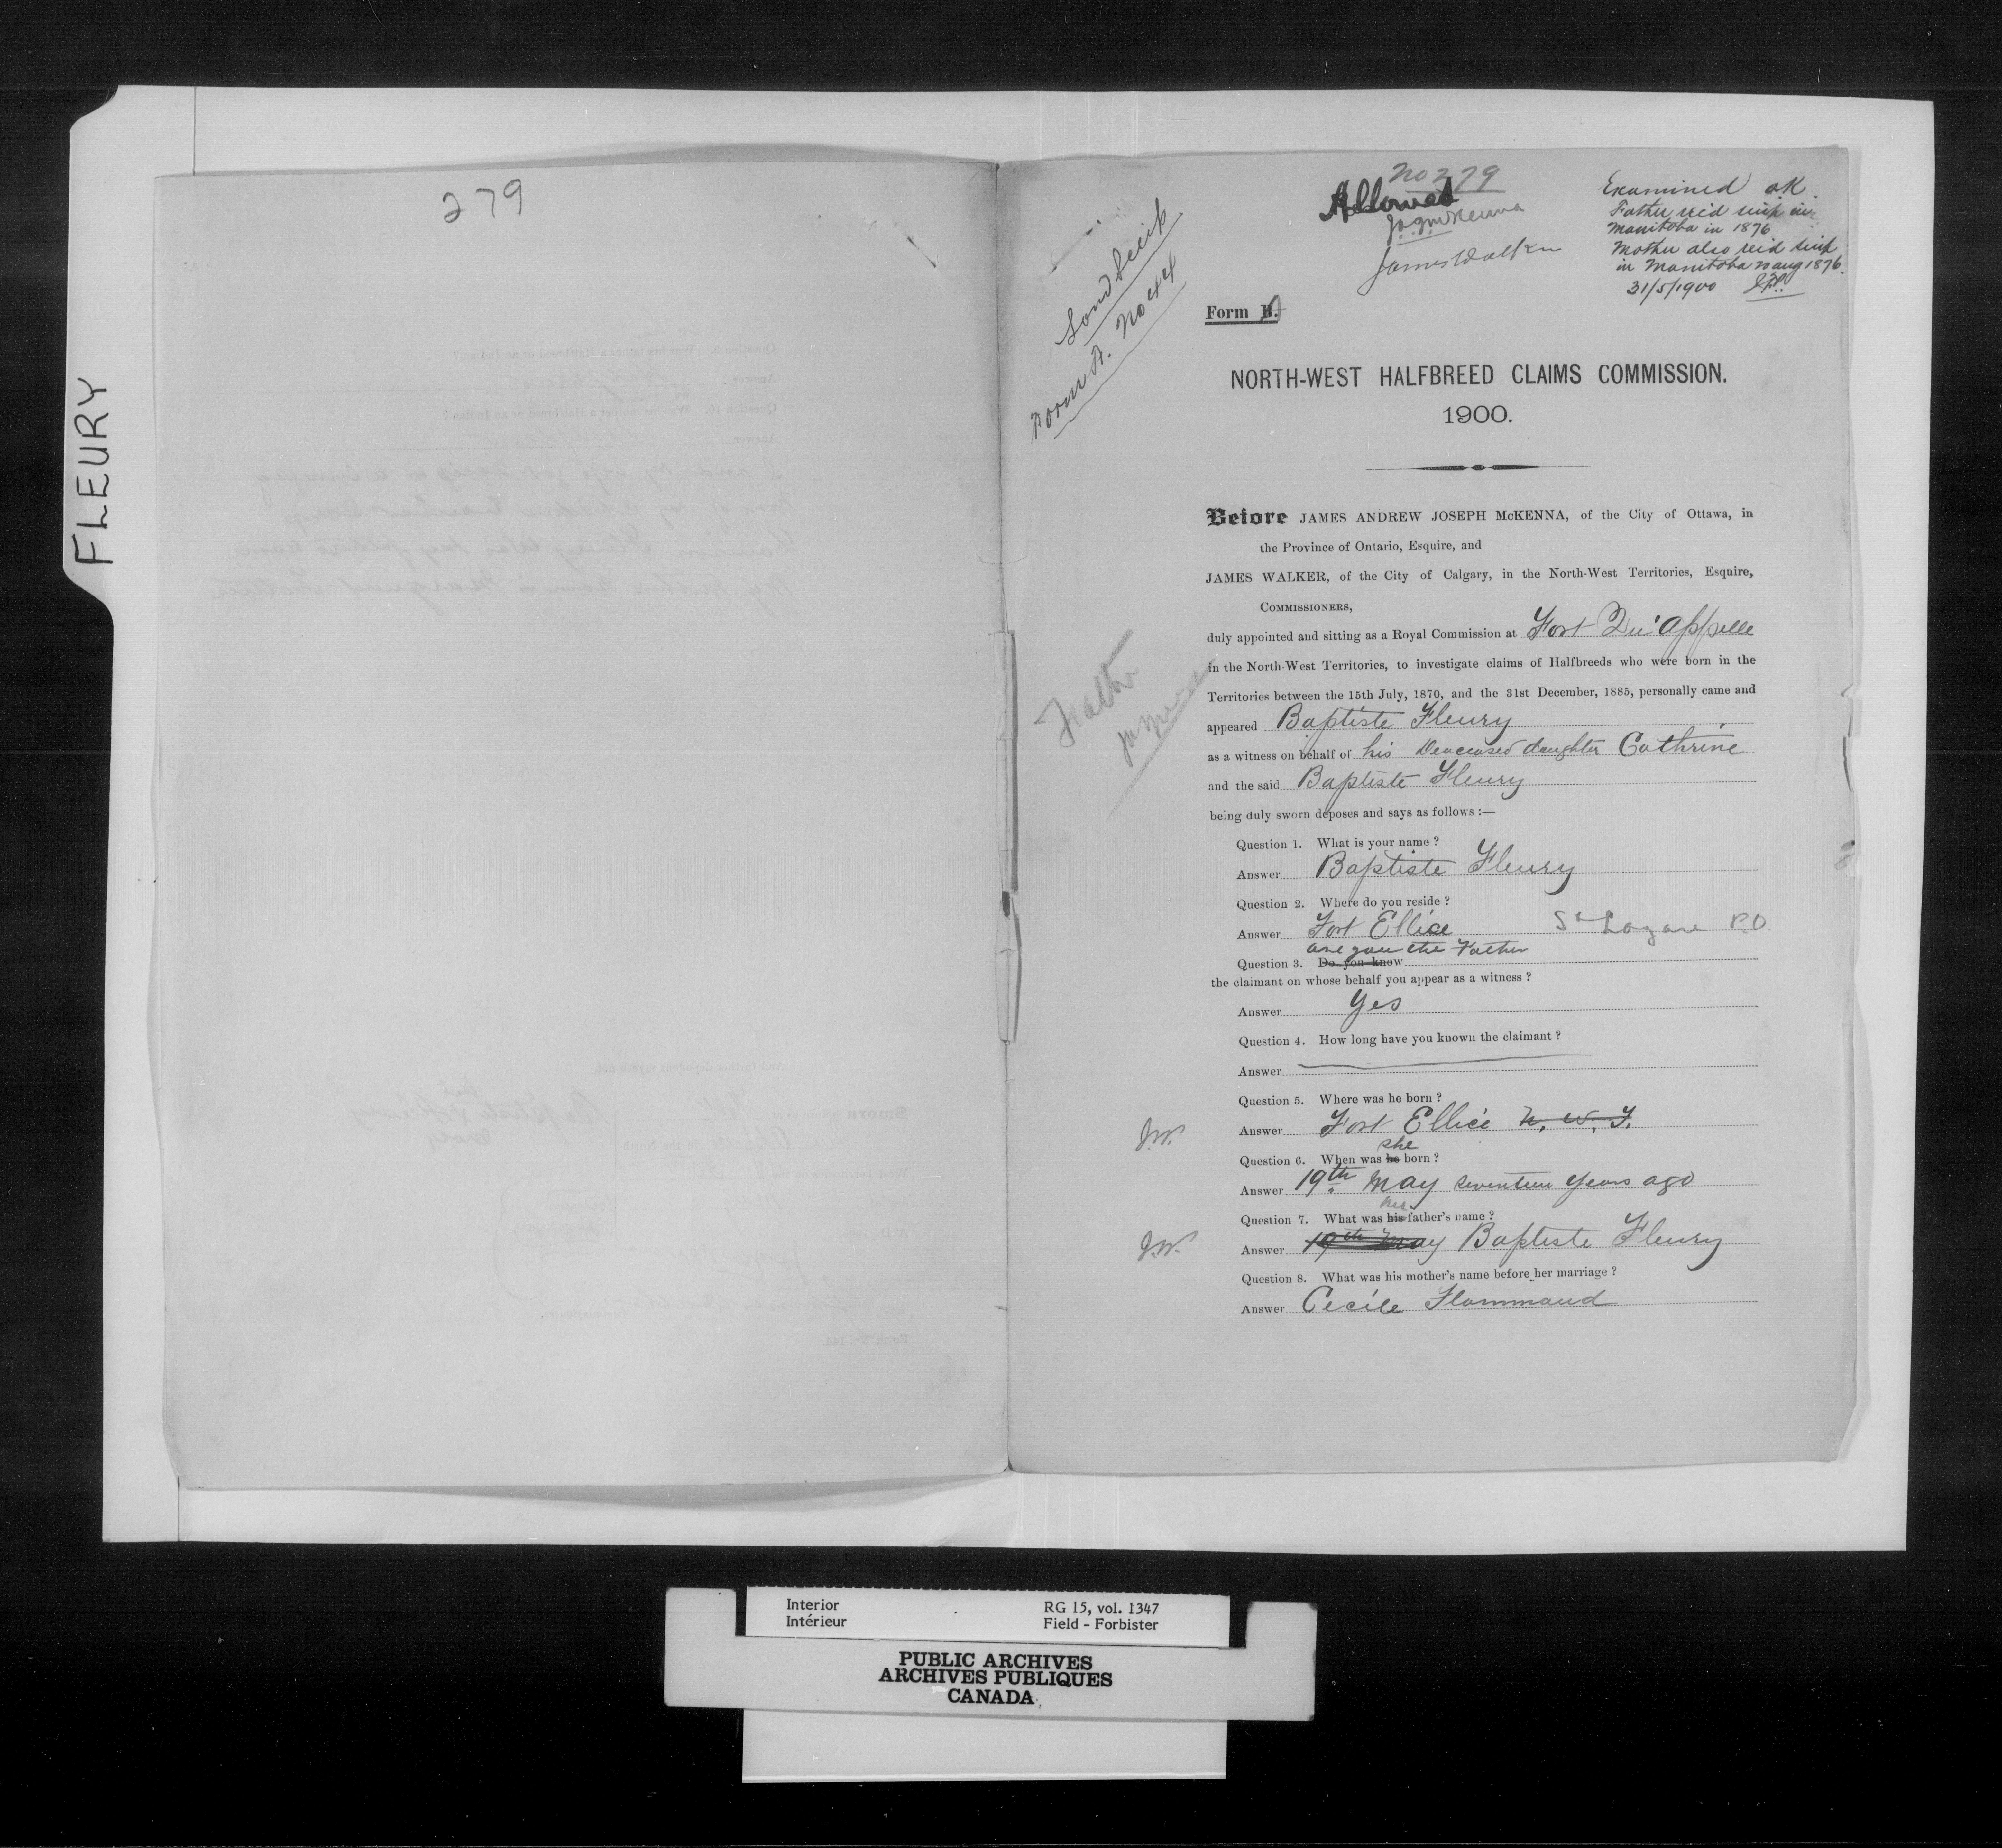 FLEURY
279
No 279
Allowed
JAJMcKenna
James Walker
Examined OK.
Father rec'd scrip in
Manitoba in 1876
Mother also rec'd scrip
in Manitoba 23 Aug 1876.
31/5/1900
Land Scrip
Form A. No 44
Form B.
NORTH-WEST HALFBREED CLAIMS COMMISSION.
1900.
Before JAMES ANDREW JOSEPH McKENNA, of the City of Ottawa, in
the Province of Ontario, Esquire, and
JAMES WALKER, of the City of Calgary, in the North-West Territories, Esquire,
COMMISSIONERS,
duly appointed and sitting as a Royal Commission at Fort Qu'Appelle
in the North-West Territories, to investigate claims of Halfbreeds who were born in the
Territories between the 15th July, 1870, and the 31st December, 1885, personally came and
appeared Baptiste Fleury
as a witness on behalf of his Deaceased daughter Cathrine
and the said Baptiste Fleury
being duly sworn deposes and says as follows :—
Question 1. What is your name ?
Answer Baptiste Fleury
Question 2. Where do you reside ?
Answer Fort Ellice St Lazare P.O.
are you the Father
Question 3. Do you know
the claimant on whose behalf you appear as a witness ?
Answer Yes
Question 4. How long have you known the claimant ?
Answer
Question 5. Where was he born ?
J.W. Answer Fort Ellice N. W. T.
she
Question 6. When was he born ?
Answer 19th May seventeen years ago
her
Question 7. What was his father's name ?
J.W. Answer 19th May Baptiste Fleury
Question 8. What was his mother's name before her marriage ?
Answer Cecile Flammand
Interior RG 15, vol. 1347
Intérieur Field - Forbister
PUBLIC ARCHIVES
ARCHIVES PUBLIQUES
CANADA